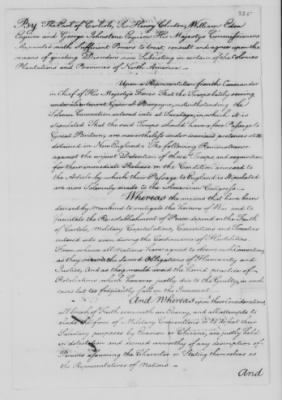 325
By The Earl of Carlisle, Sir Henry Clinton, William Eden
Esquire and George Johnstone Esquire His Majesty's Commissioners
Appointed with Sufficient Powers to treat, consult and agree upon the
means of quieting Disorders now Subsisting in certain of the Colonies
Plantations and Provinces of North America
Upon a Representation from the Commander
in Chief of His Majesty's Forces That the Troops lately serving
under Lieutenant General Burgoyne, notwithstanding the
Solemn Convention entered into at Saratoga, in which it is
stipulated That the said Troops should have a free Passage to
Great Britain, are nevertheless under
detained in New England; The following Remonstrance
against the unjust Detention of these Troops and requisition
for their immediate Release on the Condition annexed to
the Article by which their Passage to England is Stipulated
are now Solemnly made to the American Congress.
Whereas the means that have been
devised by Mankind to mitigate the horrors of War and to
facilitate the Re-establishment of Peace depend on the Faith
of Cartels, Military Capitulations, Conventions and Treaties
entered into even during the Continuance of Hostilities
From whence all Nations have agreed to observe
as they the Sacred Obligations of Humanity and
Justice, And as they would avoid the horrid practice of
Retaliations which however justly due to the Guilty in such
cases but too frequently fall on the Innocent
And Whereas upon these Considerations
all breach of Faith even with an Enemy, and all attempts to
elude the force of Military Conventions or to defeat their
Salutary purposes by Evasion or Chicane, are justly held
in detestation and deemed unworthy of any description of
Persons assuming the Character or Stating themselves as
the Representatives of Nations
And